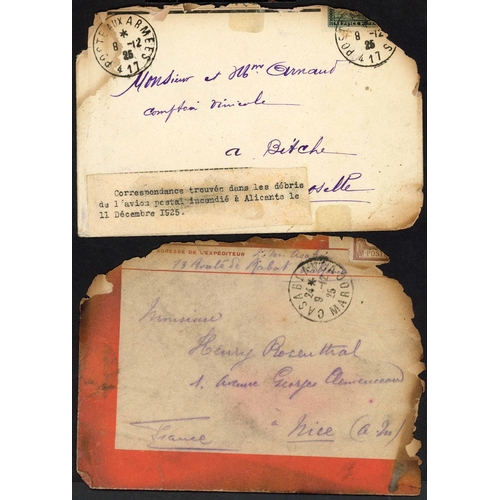 POSTE AUX ARMÉES
*
8 -12
25
17
POSTE
8 -12
25
17
Monsieur et Mme Arnaud
Comptoir Vinicole
a Bitche
Moselle
Correspondance trouvée dans les débris
de l'avion postal incendié à Alicante le
11 Décembre 1925.
ADRESSE DE L'EXPÉDITEUR
13 Route de Rabat
POSTES
CASABLANCA MAROC
24 *
9 -12
25
Monsieur
Henry Rosenthal
1. Avenue Georges Clemenceau
à Nice (A-M)
France